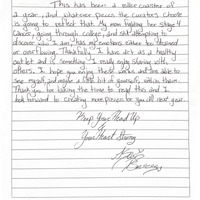 This has been a roller coaster of
a year, and whatever pieces the curators choose
is going to reflect that. My mom fighting her stage 4
Cancer, going through college, and still attempting to
discover who I am, has my emotions either too strained
or overflowing. Thankfully I have art as a healthy
outlet and is something I really enjoy sharing with
others. I hope you enjoy these works and are able to see
myself, and maybe a little bit of yourself, within them.
Thank you for taking the time to read this and I
look forward to creating more pieces for you all next year.
Keep Your Head Up
&
Your Heart Strong